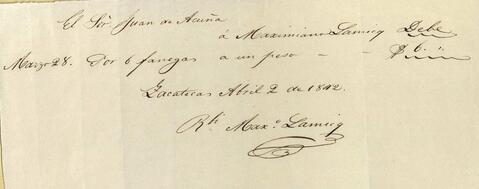 El Sör. Juan de Acuña
á Maximiano Lamicq Debe
Marzo 28. Por 6 fanegas a un peso - - $ 6 ,, ,,
Zacatecas Abril 2 de 1842.
Rbi Maxo. Lamicq